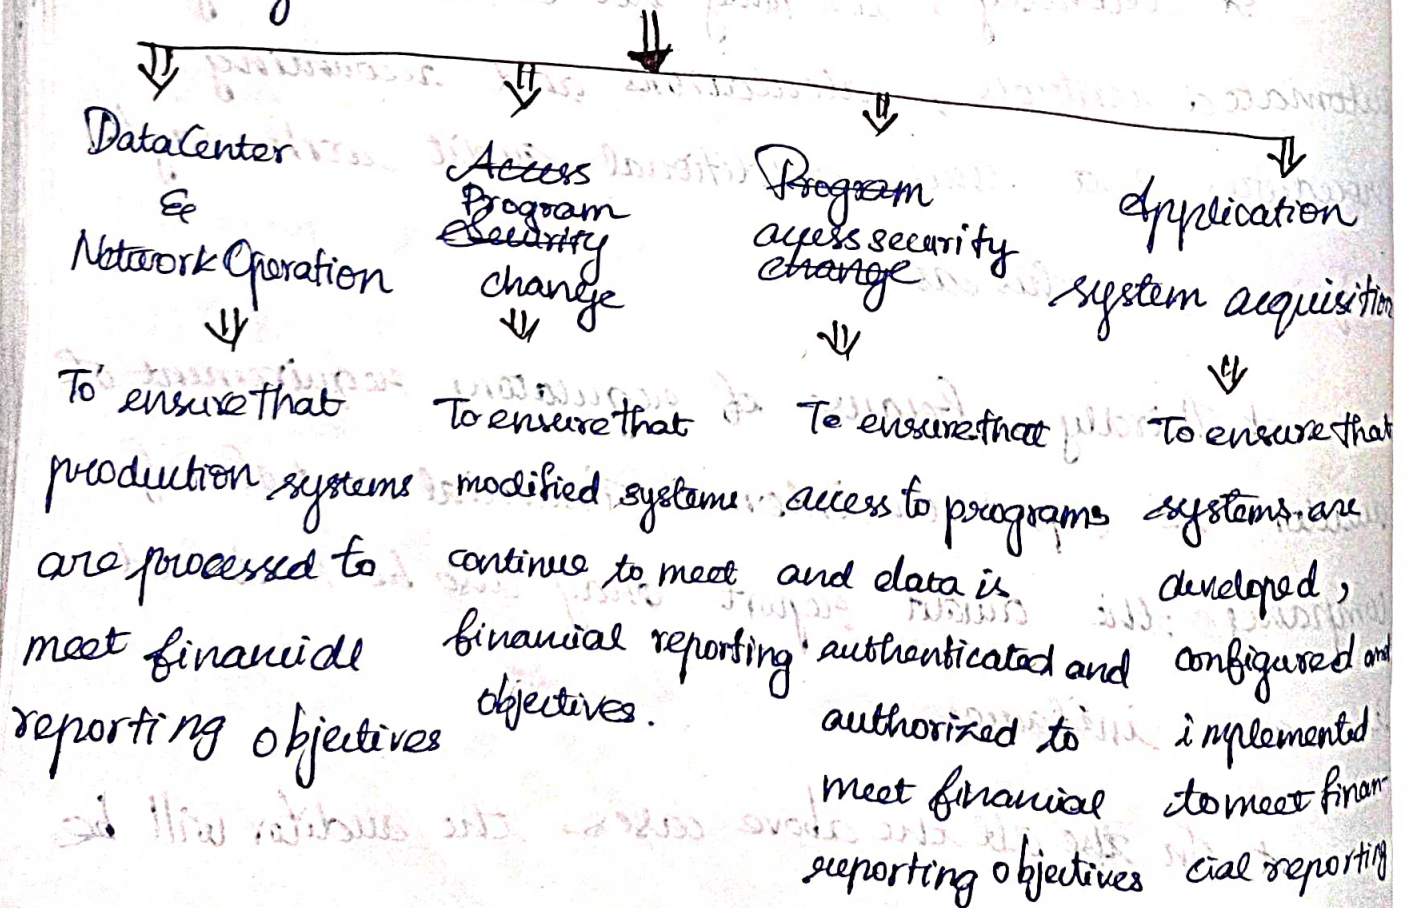 Data Center
&
Network Operation
To ensure that
production systems
are processed to
meet financial
reporting objectives
Access
Program
Security
change
To ensure that
modified systems
continue to meet
financial reporting
objectives.
Program
access security
change
To ensure that
access to programs
and data is
authenticated and
authorized to
meet financial
reporting objectives
Application
system acquisition
To ensure that
systems are
developed,
configured and
implemented
to meet finan-
cial reporting